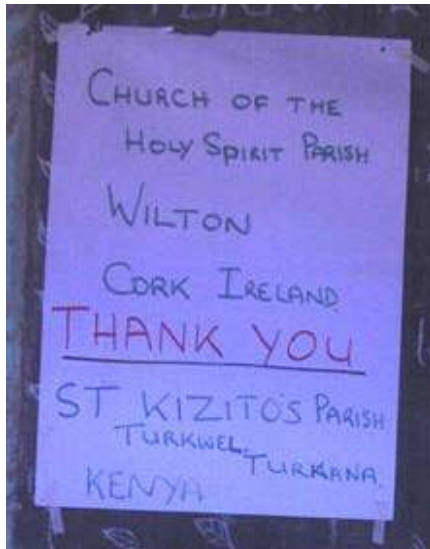 CHURCH OF THE
HOLY SPIRIT PARISH
WILTON
CORK IRELAND.
THANK YOU
ST KIZITO'S PARISH
TURKWEL,
TURKANA,
KENYA